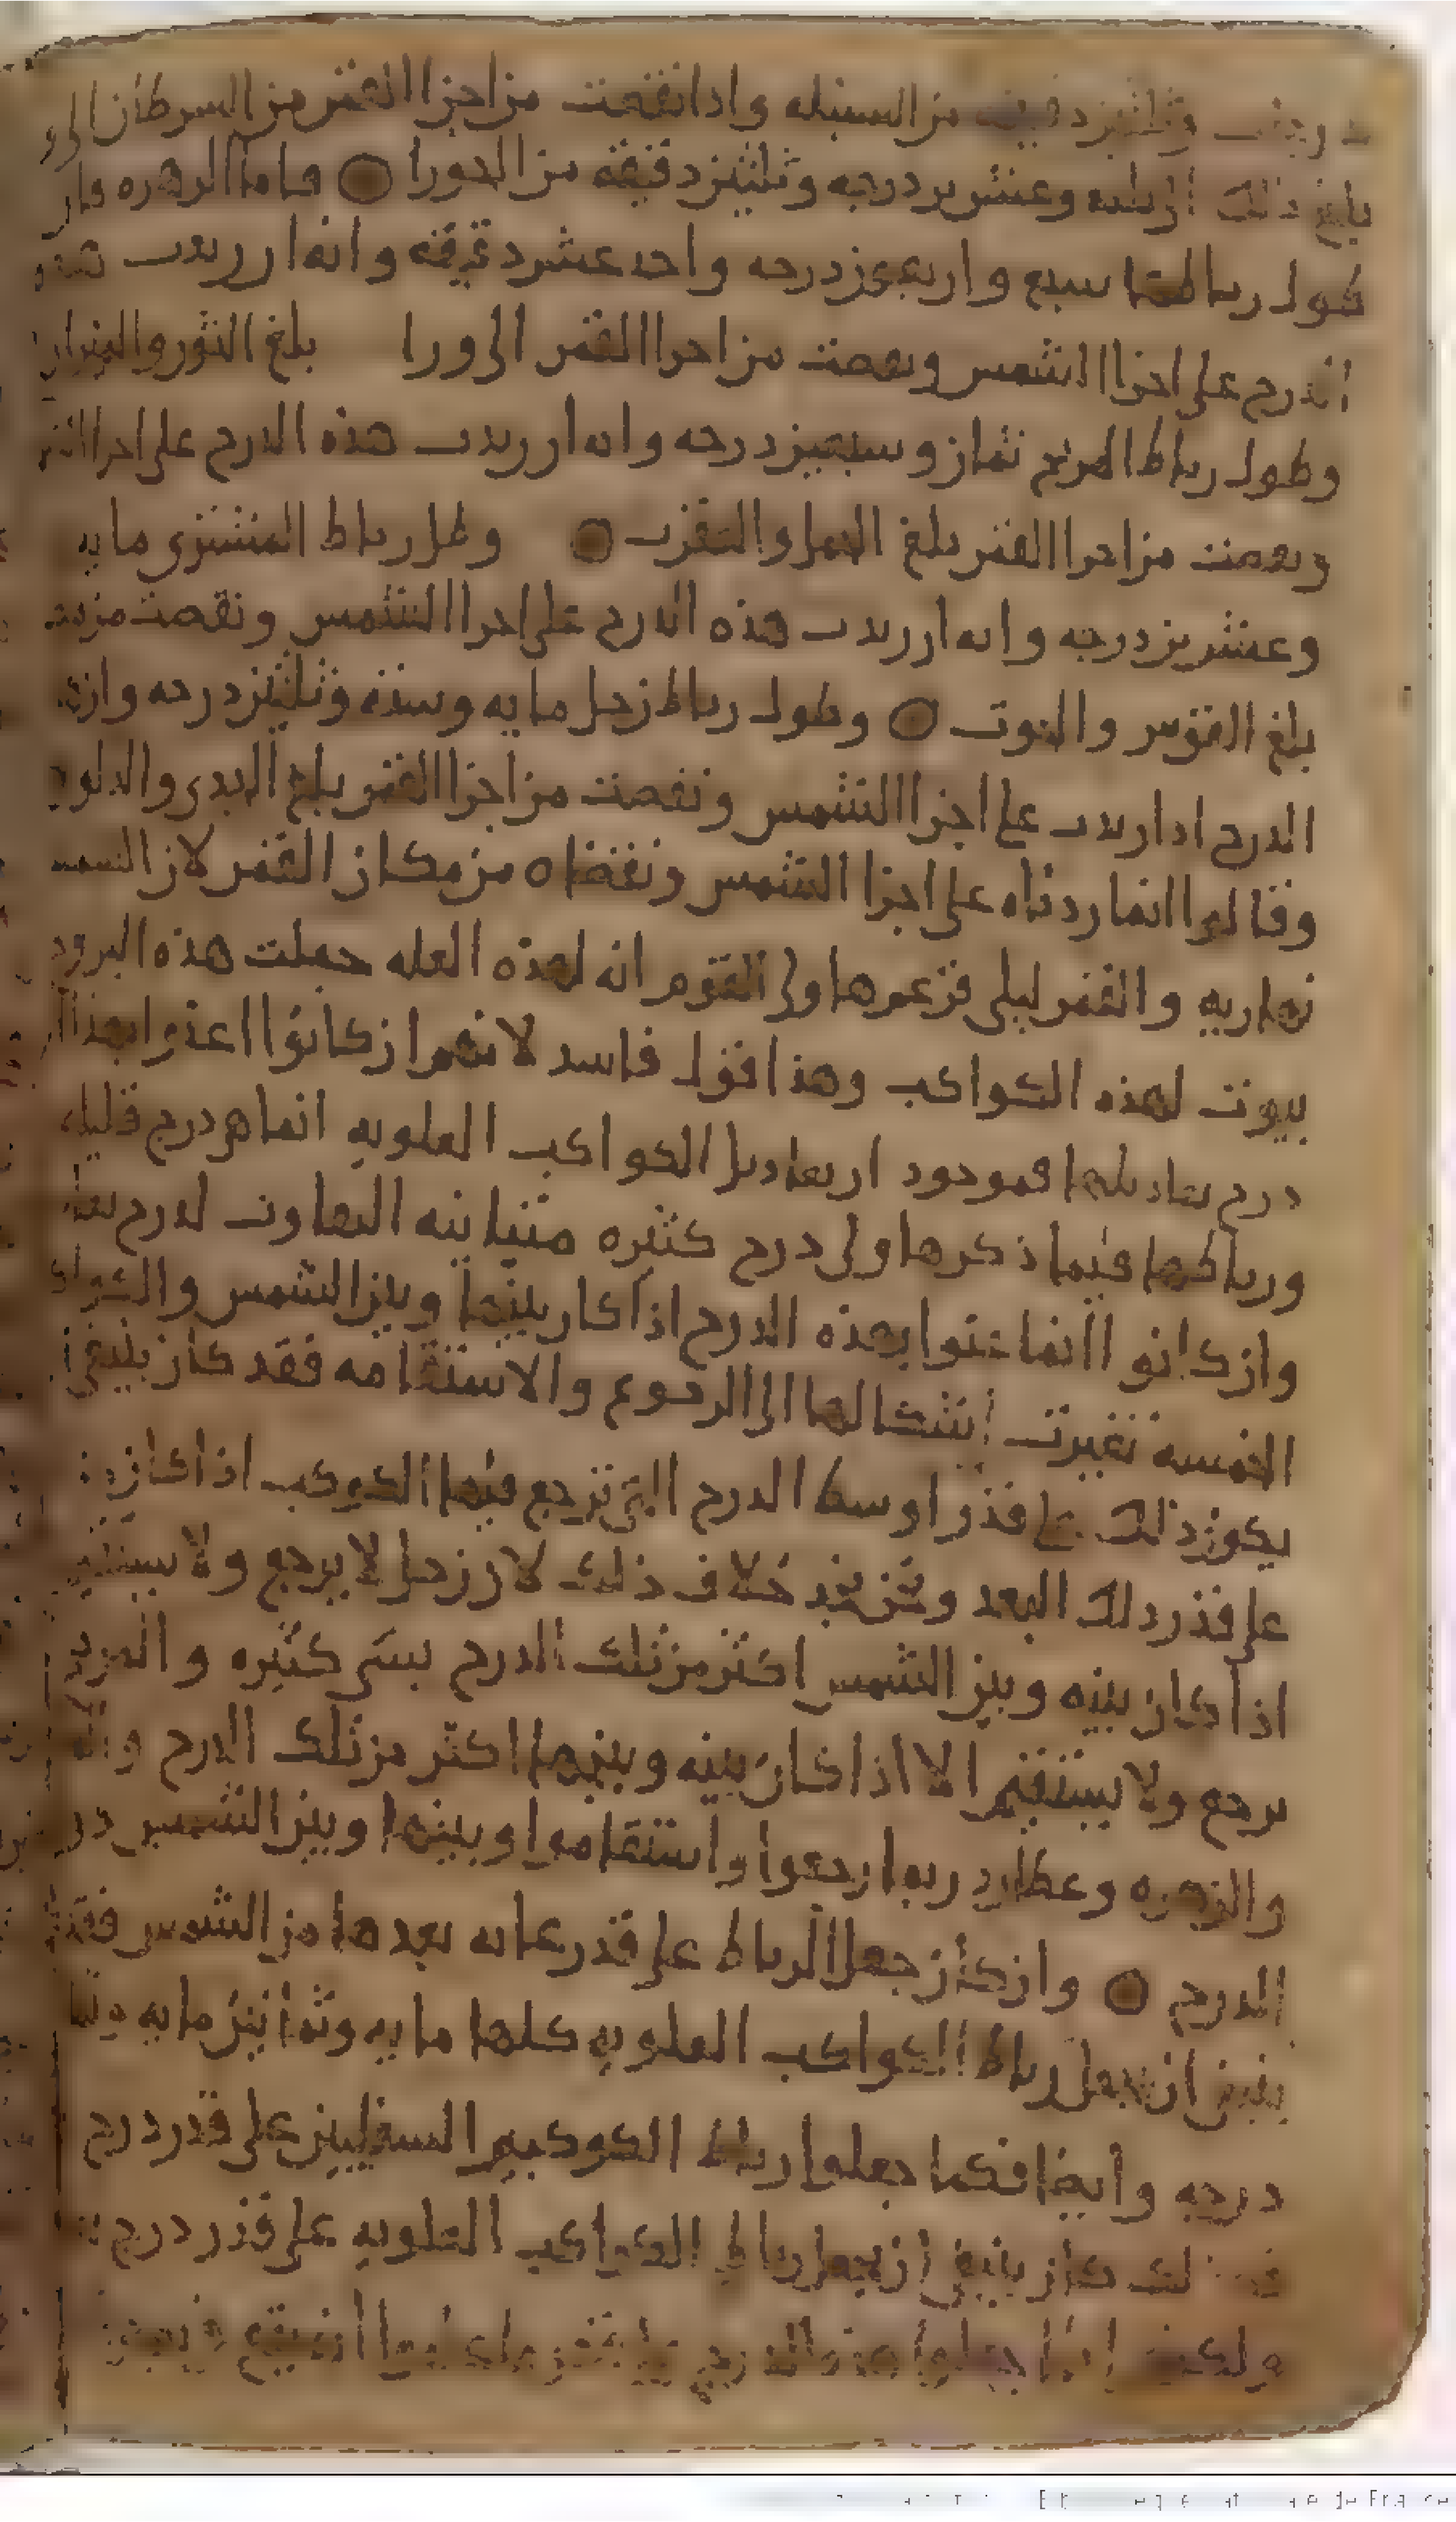 درجه وثلثين دقيقه من السنبله واذا نقصت من اجزا القمر من السرطان الى
بلغ ذلك الى ثلثه وعشرين درجه وثلثين دقيقه من الجوزا ○ فاما الزهره فان
طول رباطها سبع واربعين درجه واحد عشر دقيقه وانه ان زيدت هذه
الدرج على اجزا الشمس ونقصت من اجزا القمر الى ورا بلغ الثور والميزان
وطول رباط المريخ ثمان وسبعين درجه وانه ان زيدت هذه الدرج على اجزا
ونقصت من اجزا القمر بلغ الحمل والعقرب ○ وطول رباط المشتري مايه
وعشرين درجه وانه ان زيدت هذه الدرج على اجزا الشمس ونقصت من
بلغ القوس والحوت ○ وطول رباط زحل مايه وسته وثلثين درجه وان
الدرج اذا زيدت على اجزا الشمس ونقصت من اجزا القمر بلغ الجدي والدلو
وقالوا انما زدناه على اجزا الشمس ونقصناه من مكان القمر لان الشمس
نهاريه والقمر ليلي فزعم هاولى القوم انه لهذه العله جعلت هذه البروج
بيوت لهذه الكواكب وهذا قول فاسد لانهم ان كانوا اعنوا بهذا
درج فموجود الكواكب العلويه انما هو درج قليله
ورباطها فيما ذكر هاولى درج كثيره متباينه التفاوت لدرج
وان كانوا انما عنوا بهذه الدرج اذا كان بينها وبين الشمس والكواكب
الخمسه تغيرت اشكالها الى الرجوع والاستقامه فقد كان ينبغي
يكون ذلك على قدر اوسط الدرج التي ترجع فيها الكوكب اذا كان
على قدر ذلك البعد ونحن نجد خلاف ذلك لان زحل لا يرجع ولا يستقيم
اذا كان بينه وبين الشمس اكثر من تلك الدرج بشي كثيره والمريخ
يرجع ولا يستقيم الا اذا كان بينه وبينها اكثر من تلك الدرج
والزهره وعطارد ربما رجعوا واستقاموا وبينها وبين الشمس
الدرج ○ وان كان جعل الرباط على قدر غايه بعدها من الشمس فقد
ينبغي ان يجعل رباط الكواكب العلويه كلها مايه وثمانين مايه وثمانين
درجه وايضا فكما جعلوا رباط الكوكبين السفليين على قدر درج
فكذلك كان ينبغي ان يجعل رباط الكواكب العلويه على قدر درج
ولكن انما جعلوا هذه الدرج